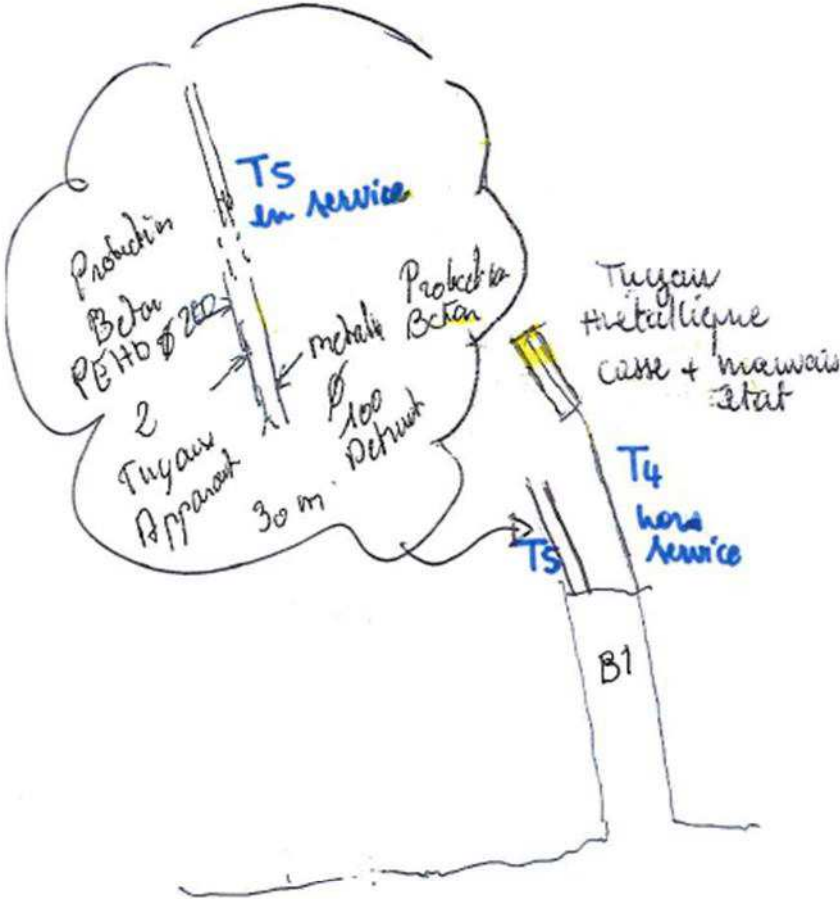 T5
en service
Protection
Beton
PEHD ø 200
2
Tuyaux
Apparent
30 m
metalic
ø
100
Detruit
Protection
Beton
Tuyau
métallique
casse + mauvais
état
T4
hors
service
T5
B1